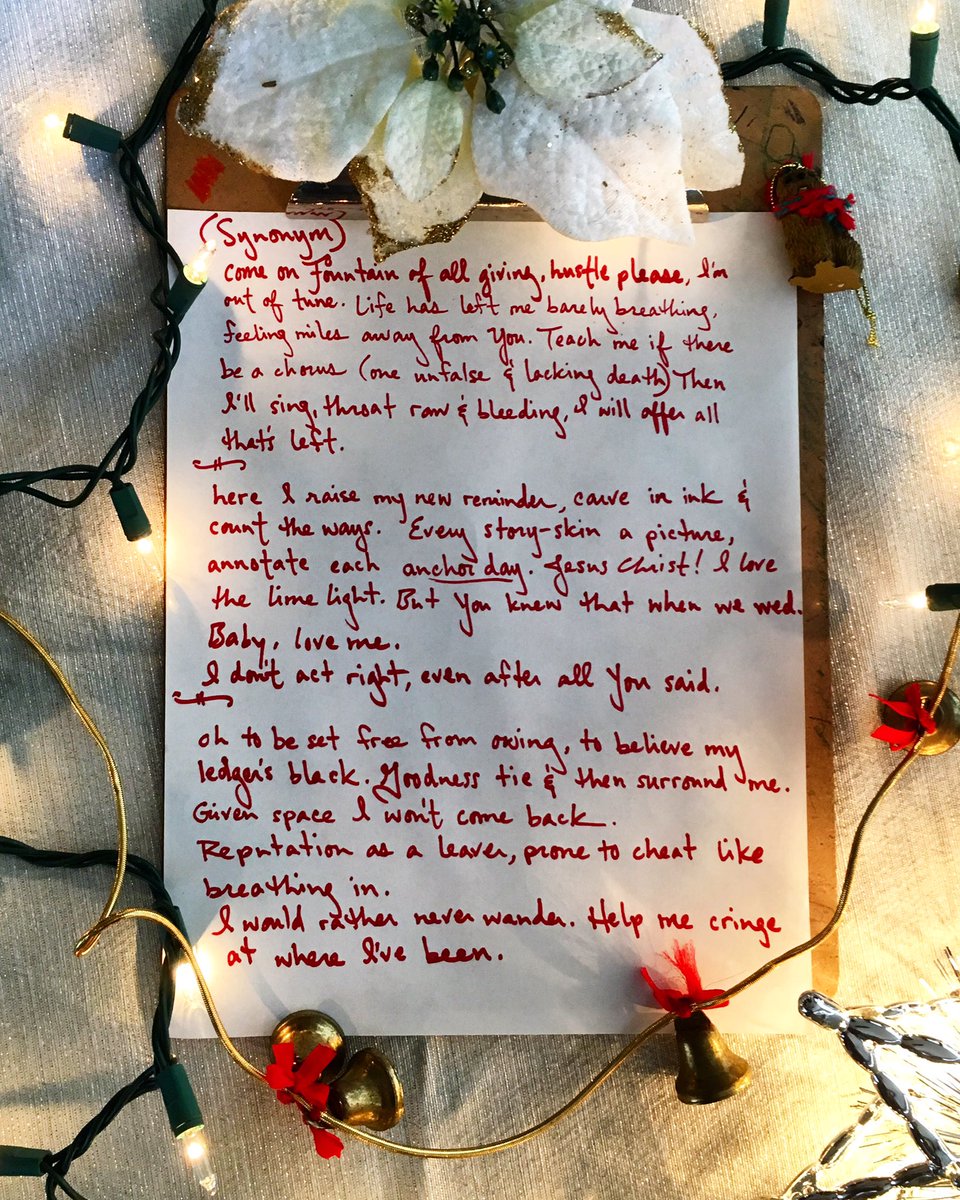 (Synonym)
come on fountain of all giving, hustle please, I'm
out of tune. Life has left me barely breathing,
feeling miles away from You. Teach me if there
be a chorus (one unfalse & lacking death) Then
I'll sing, throat raw & bleeding, I will offer all
that's left.
here I raise my new reminder, carve in ink &
count the ways. Every story-skin a picture,
annotate each anchor day. Jesus Christ! I love
the lime light. But You knew that when we wed.
Baby, love me.
I don't act right, even after all You said.
oh to be set free from owing, to believe my
ledger's black. Goodness tie & then surround me.
Given space I won't come back.
Reputation as a leaver, prone to cheat like
breathing in.
I would rather never wander. Help me cringe
at where I've been.